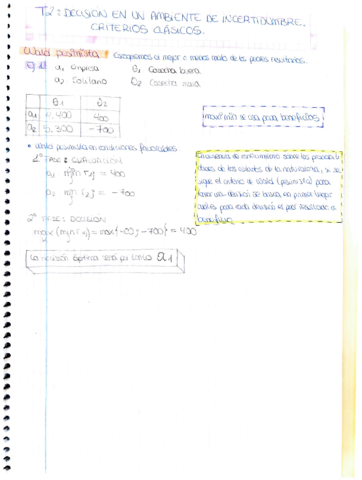 T.2: DECISIÓN EN UN AMBIENTE DE INCERTIDUMBRE.
CRITERIOS CLÁSICOS.
Wald pesimista: Escogeremos lo mejor o menos malo de los peores resultados.
a₁ θ₁ Cosecha buena
a₂ Soultano θ₂ Cosecha mala
θ₁ θ₂
a₁ 4.400 400
a₂ 5.300 -700
maximin se usa para beneficios
• Wald pesimista en condiciones favorables
1ª FASE: EVALUACIÓN
a₁ min r₁j = 400
a₂ min r₂j = -700
2ª FASE: DECISIÓN
max (min rij) = max {400, -700} = 400
La decisión óptima será por tanto a₁
de los estados de la naturaleza, y se
sigue el criterio de Wald (pesimista) para
tomar una decisión se busca, en primer lugar
cuál es para cada decisión el peor resultado o
beneficio